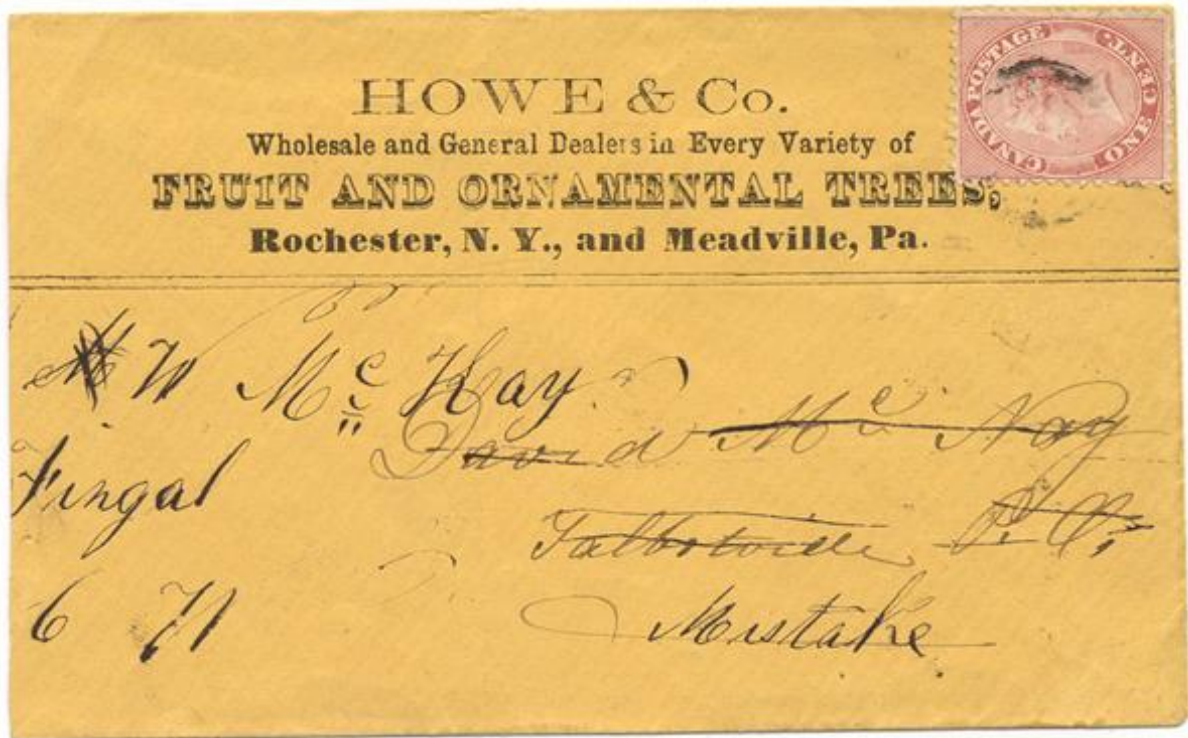 HOWE & Co.
Wholesale and General Dealers in Every Variety of
FRUIT AND ORNAMENTAL TREES,
Rochester, N. Y., and Meadville, Pa.
CANADA POSTAGE
ONE CENT.
W Mc Kay
David Mc Nay
Fingal
Talbotville P. O.,
Mistake
6